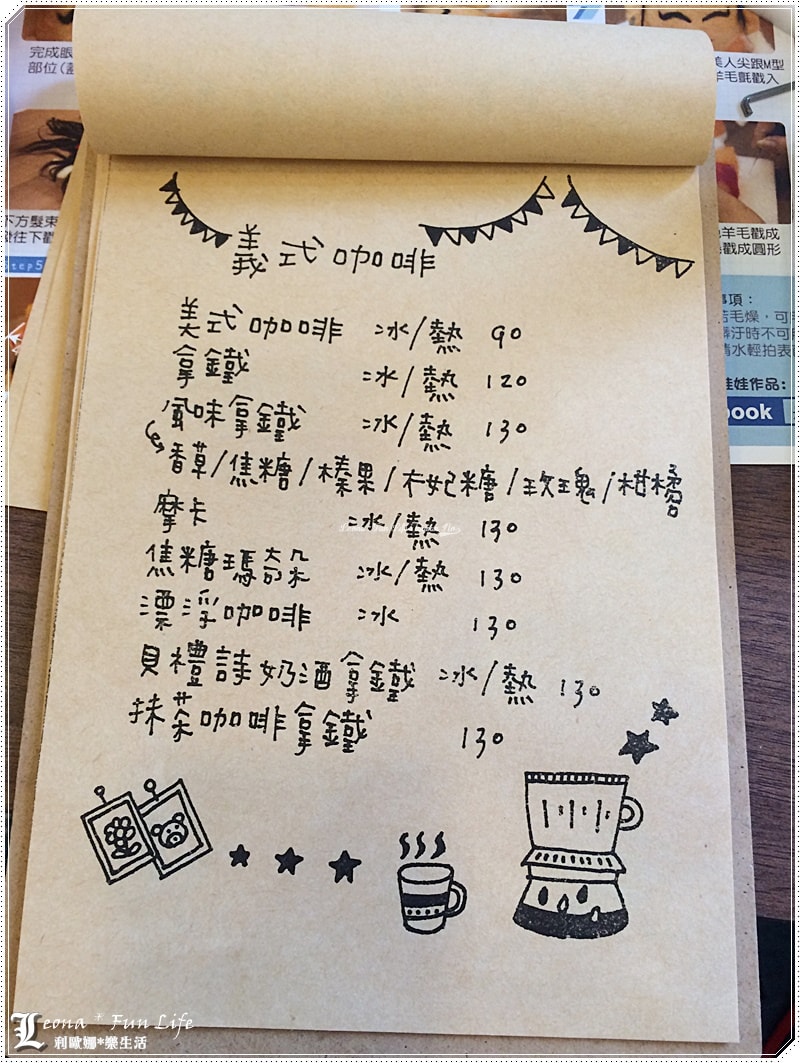 完成眼
部位(蓋
美人尖跟M型
羊毛氈戳入
下方髮束
step5
羊毛戳成
戳成圓形
事項：
義式咖啡
美式咖啡 冰/熱 90
拿鐵 冰/熱 120
風味拿鐵 冰/熱 130
香草/焦糖/榛果/太妃糖/玫瑰/柑橘
摩卡 冰/熱 130
焦糖瑪奇朵 冰/熱 130
漂浮咖啡 冰 130
貝禮詩奶酒拿鐵 冰/熱 130
抹茶咖啡拿鐵 130
娃娃作品:
book
Leona * Fun Life
利歐娜*樂生活